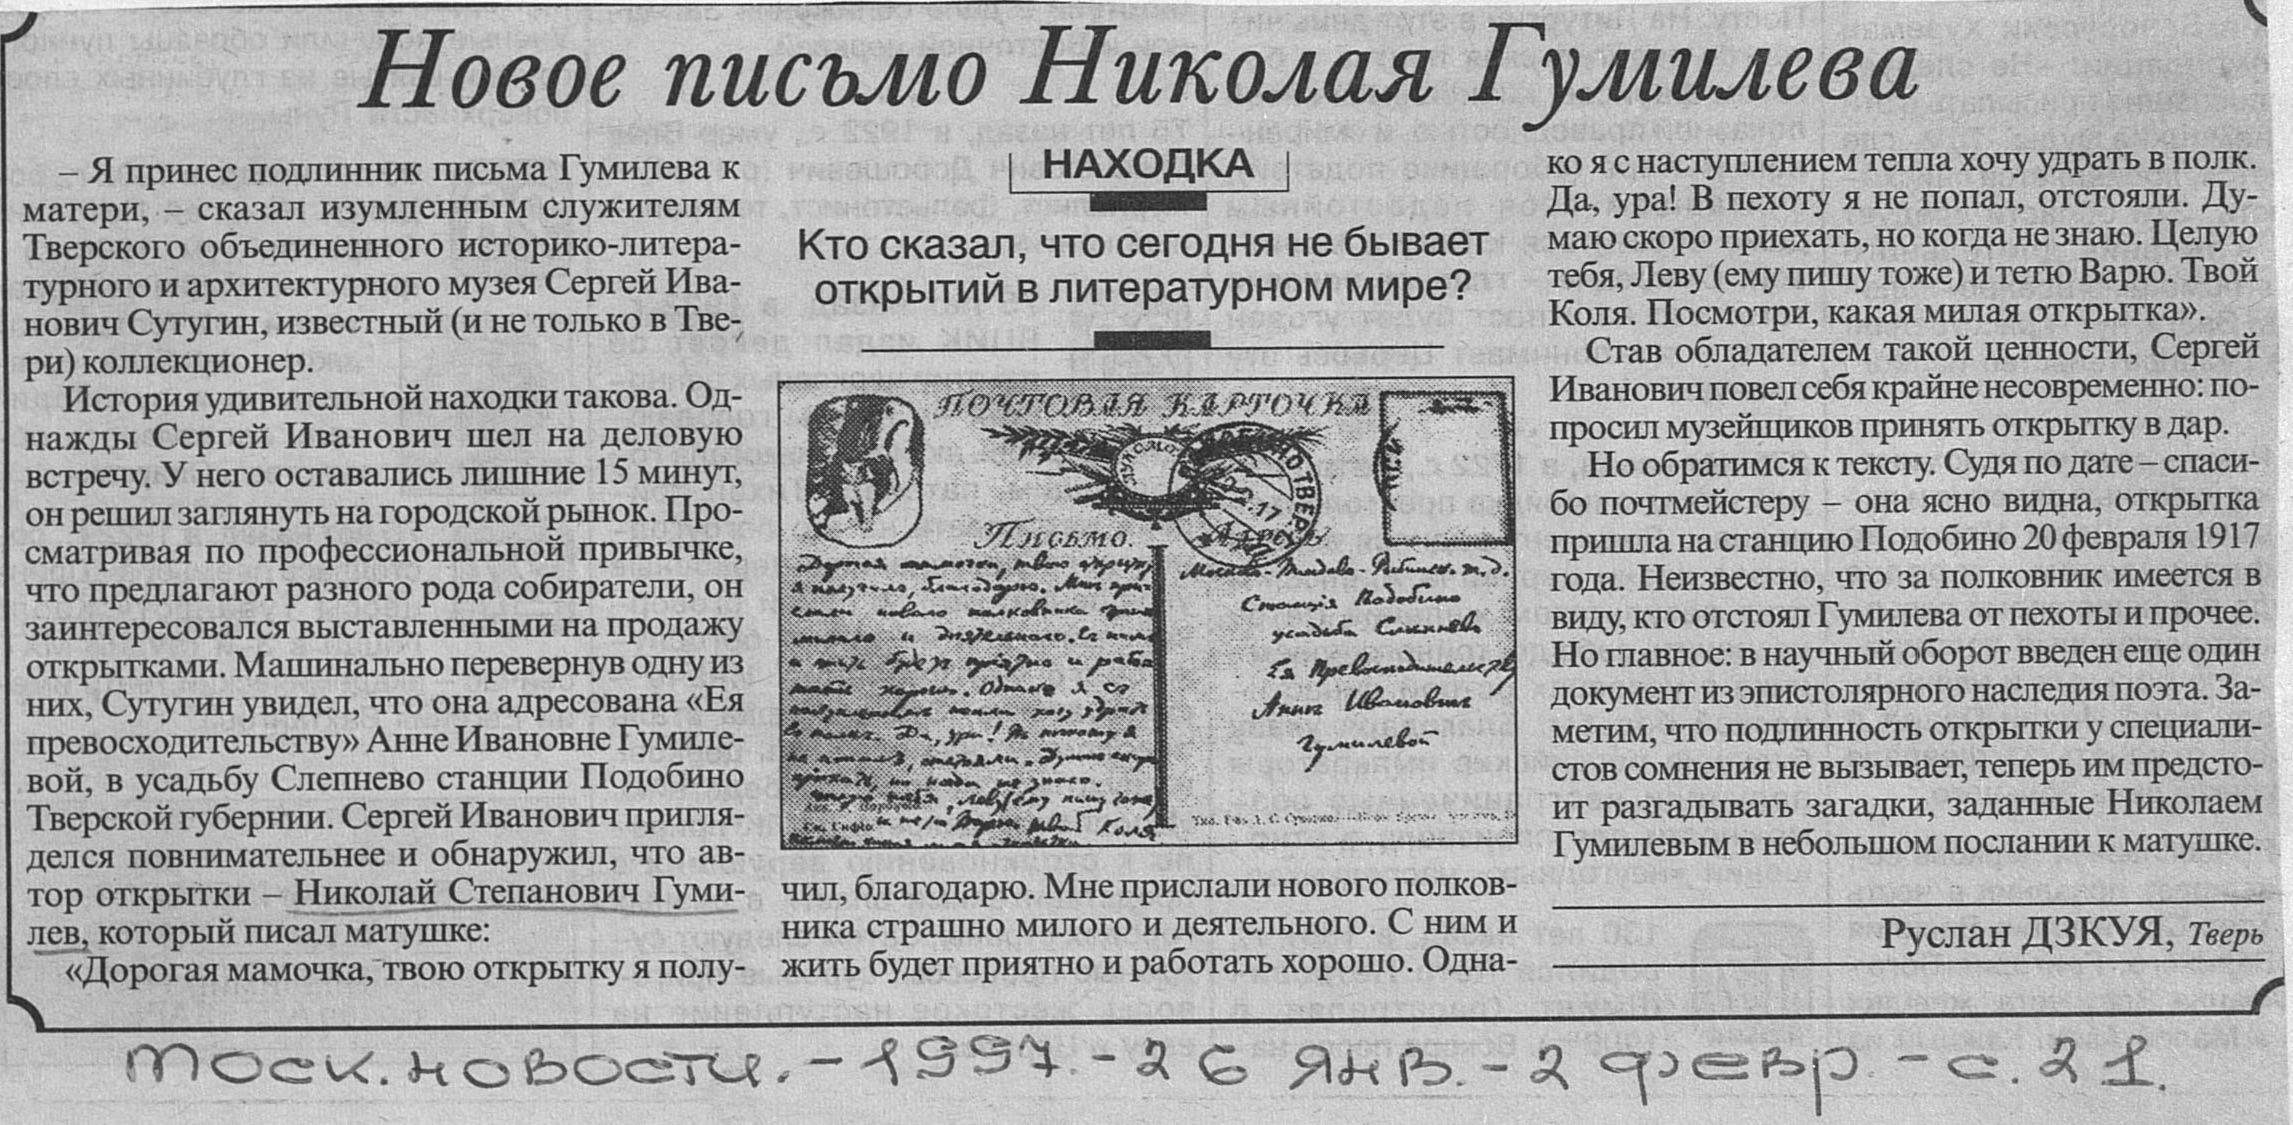 Новое письмо Николая Гумилева
– Я принес подлинник письма Гумилева к
матери, – сказал изумленным служителям
Тверского объединенного историко-литера-
турного и архитектурного музея Сергей Ива-
нович Сутугин, известный (и не только в Тве-
ри) коллекционер.
История удивительной находки такова. Од-
нажды Сергей Иванович шел на деловую
встречу. У него оставались лишние 15 минут,
он решил заглянуть на городской рынок. Про-
сматривая по профессиональной привычке,
что предлагают разного рода собиратели, он
заинтересовался выставленными на продажу
открытками. Машинально перевернув одну из
них, Сутугин увидел, что она адресована «Ея
превосходительству» Анне Ивановне Гумиле-
вой, в усадьбу Слепнево станции Подобино
Тверской губернии. Сергей Иванович пригля-
делся повнимательнее и обнаружил, что ав-
тор открытки – Николай Степанович Гуми-
лев, который писал матушке:
«Дорогая мамочка, твою открытку я полу-
НАХОДКА
Кто сказал, что сегодня не бывает
открытий в литературном мире?
ПОЧТОВАЯ КАРТОЧКА
Письмо.
Адресъ
Дорогая мамочка, твою
я получилъ, благодарю. Мнѣ при-
слали новаго полковника
милаго и дѣятельнаго. Съ нимъ
и жить будетъ пріятно и рабо
тать хорошо. Однако я съ
хочу удрать
въ полкъ. Да, ура! Въ пѣхоту я
не попалъ, отстояли. Думаю скоро
пріѣхать, но когда не знаю.
тебя, Леву (ему пишу тоже)
и тетю Варю Твой Коля
Станція Подобино
усадьба Слѣпнево
Ея Превосходительству
Аннѣ Ивановнѣ
Гумилевой
чил, благодарю. Мне прислали нового полков-
ника страшно милого и деятельного. С ним и
жить будет приятно и работать хорошо. Одна-
ко я с наступлением тепла хочу удрать в полк.
Да, ура! В пехоту я не попал, отстояли. Ду-
маю скоро приехать, но когда не знаю. Целую
тебя, Леву (ему пишу тоже) и тетю Варю. Твой
Коля. Посмотри, какая милая открытка».
Став обладателем такой ценности, Сергей
Иванович повел себя крайне несовременно: по-
просил музейщиков принять открытку в дар.
Но обратимся к тексту. Судя по дате – спаси-
бо почтмейстеру – она ясно видна, открытка
пришла на станцию Подобино 20 февраля 1917
года. Неизвестно, что за полковник имеется в
виду, кто отстоял Гумилева от пехоты и прочее.
Но главное: в научный оборот введен еще один
документ из эпистолярного наследия поэта. За-
метим, что подлинность открытки у специали-
стов сомнения не вызывает, теперь им предсто-
ит разгадывать загадки, заданные Николаем
Гумилевым в небольшом послании к матушке.
Руслан ДЗКУЯ, Тверь
Моск. новости. – 1997. – 26 янв. – 2 февр. – с. 21.